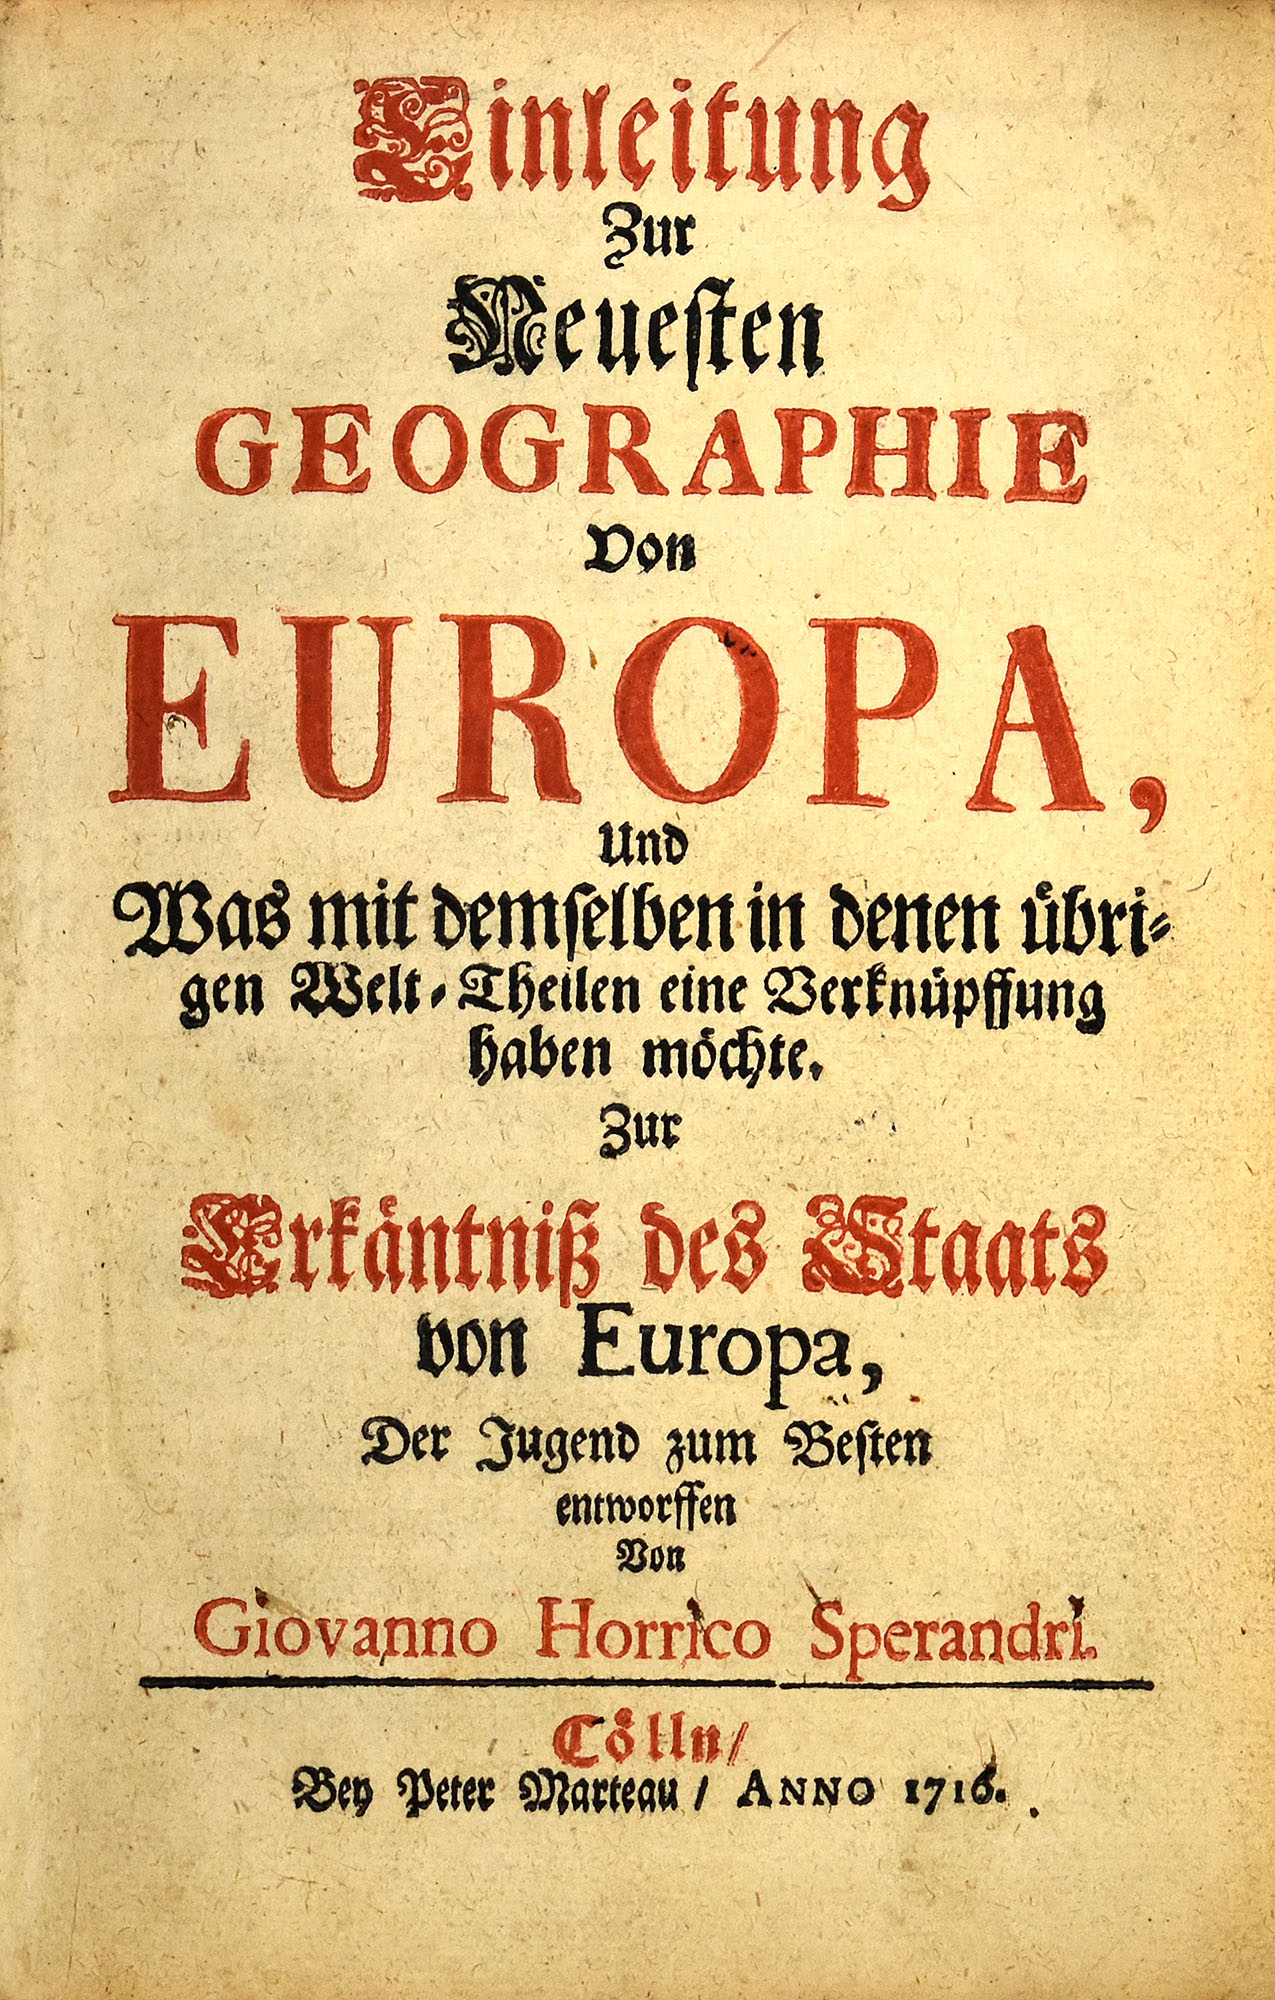 Einleitung
Zur
Neuesten
GEOGRAPHIE
Von
EUROPA,
Und
Was mit demselben in denen übri-
gen Welt-Theilen eine Verknüpffung
haben möchte.
Zur
Erkäntniß des Staats
von Europa,
Der Jugend zum Besten
entworffen
Von
Giovanno Horrico Sperandri.
Cölln/
Bey Peter Marteau / ANNO 1716.